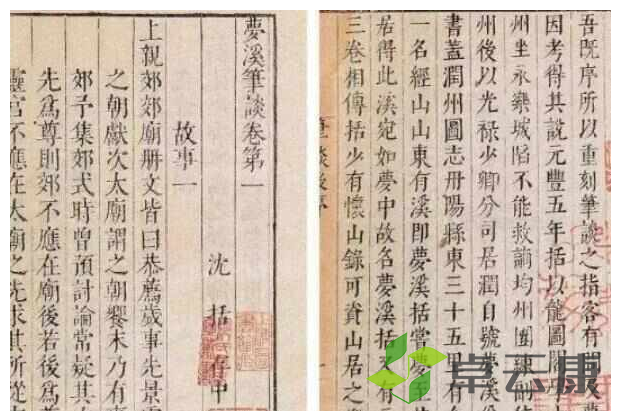 夢溪筆談卷第一
沈括存中
故事一
上親郊郊廟册文皆曰恭薦歲事先景靈
之朝獻次太廟謂之朝饗末乃有事
郊予集郊式時曾預討論常疑其
先爲尊則郊不應在廟後若後爲尊
靈宫不應在太廟之先求其所從
吾旣序所以重刻筆談之指客有問及夢
因考得其說元豐五年括以龍圖閣
州坐永樂城陷不能救謫均州團練副使
州後以光祿少卿分司居潤自號夢溪
書蓋潤州圖志丹陽縣東三十五里有
一名經山山東有溪卽夢溪括嘗夢至
居得此溪宛如夢中故名夢溪括又有
三卷相傳括少有懷山錄可資山居之
筆談後序
卓云康